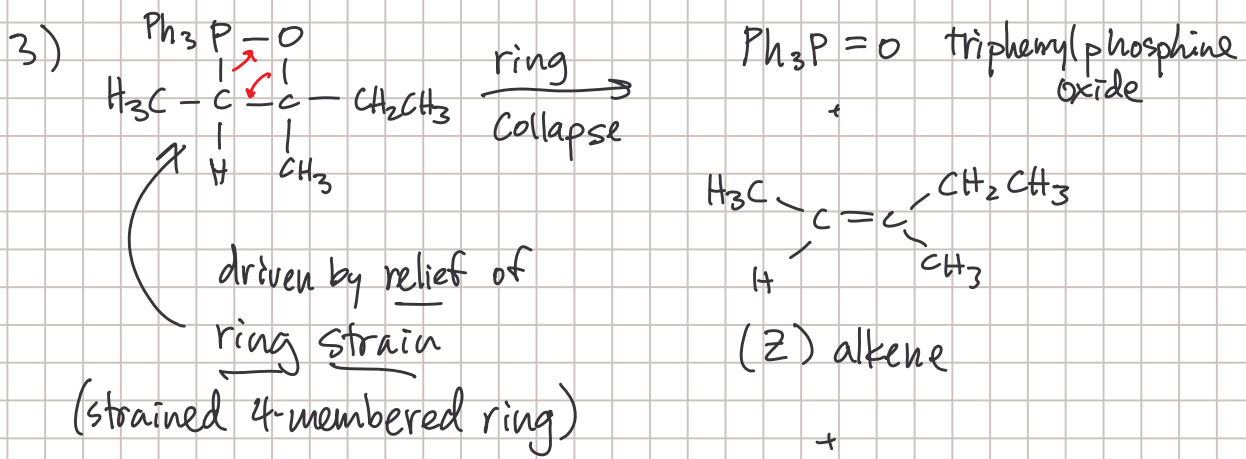 3)
Ph3 P – O
H3C – C – C – CH2CH3
H CH3
ring
Collapse
Ph3P = O triphenylphosphine
oxide
+
H3C CH2CH3
C = C
H CH3
driven by relief of
ring strain
(strained 4-membered ring)
(Z) alkene
+